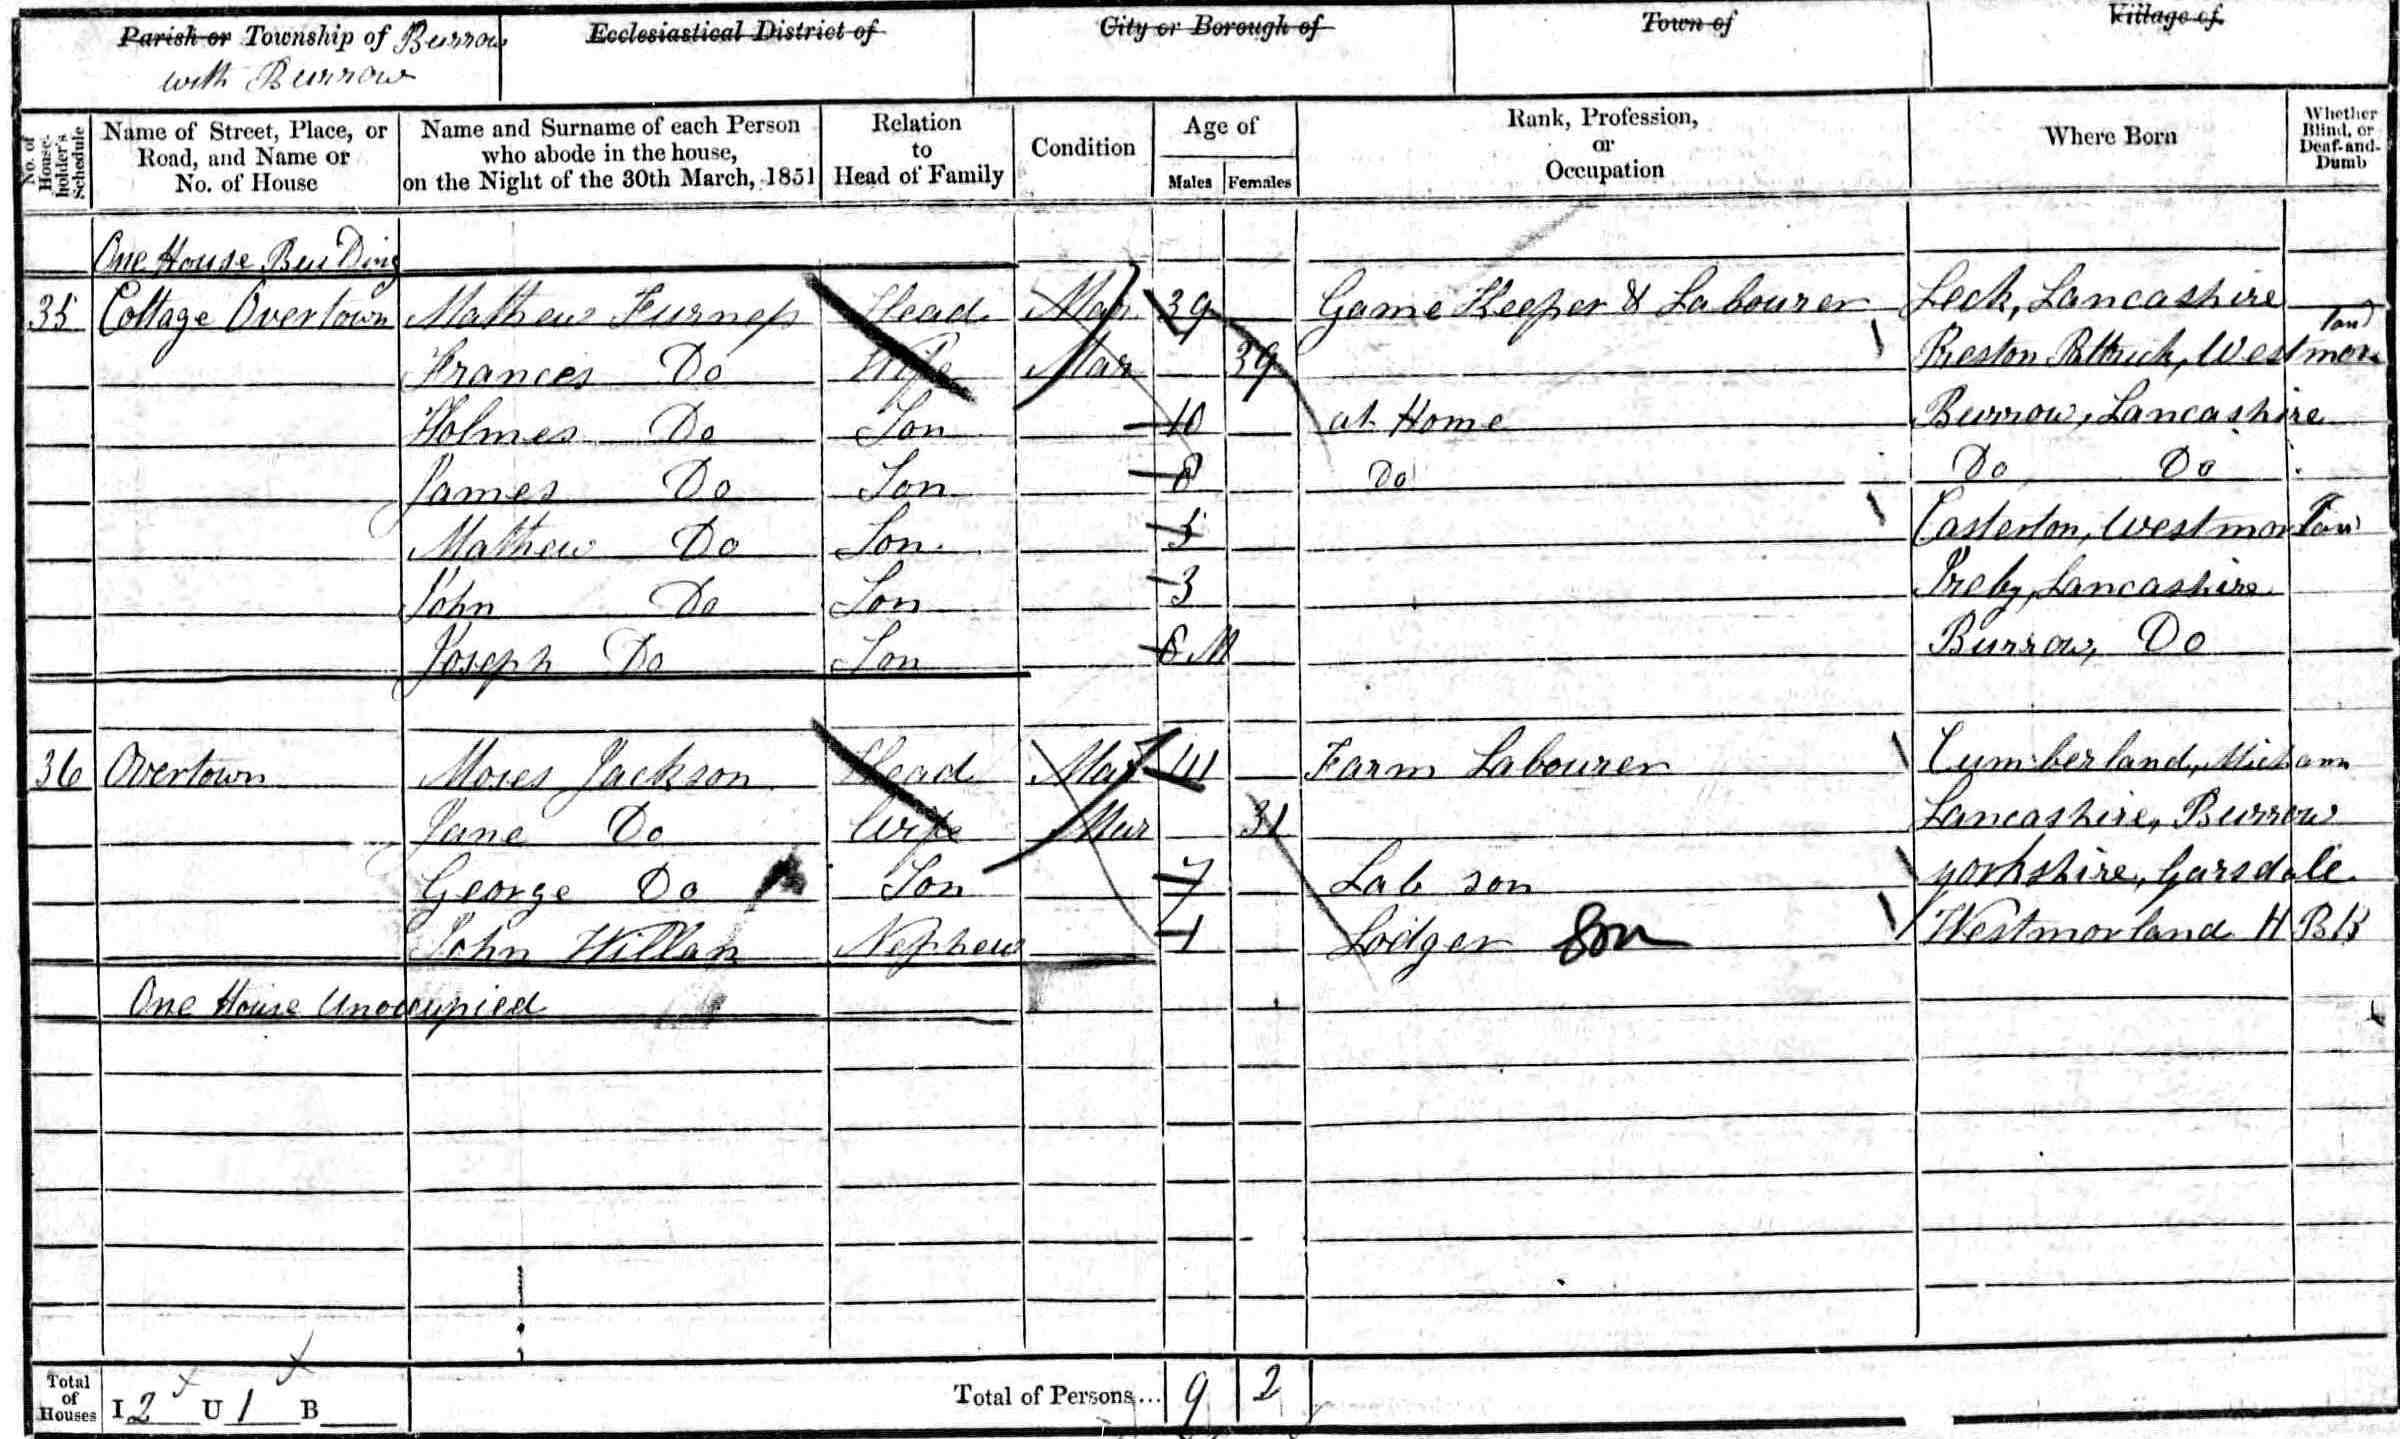 Parish or Township of Burrow with Burrow
Ecclesiastical District of
City or Borough of
Town of
Village of
No. of House-holder's Schedule
Name of Street, Place, or Road, and Name or No. of House
Name and Surname of each Person who abode in the house, on the Night of the 30th March, 1851
Relation to Head of Family
Condition
Age of
Males Females
Rank, Profession, or Occupation
Where Born
Whether Blind, or Deaf-and-Dumb
One House Building
35 Cottage Overtown Mathew Furness Head Mar 39 Game Keeper & Labourer Leck, Lancashire
Frances Do Wife Mar 39 Preston Pattrick, Westmorland
Holmes Do Son 10 at Home Burrow, Lancashire
James Do Son 8 Do Do Do
Mathew Do Son 5 Casterton, Westmorland
John Do Son 3 Ireby, Lancashire
Joseph Do Son 8 M Burrow, Do
36 Overtown Moses Jackson Head Mar 41 Farm Labourer Cumberland,
Jane Do Wife Mar 31 Lancashire, Burrow
George Do Son 7 Lab son Yorkshire, Garsdale
John Willan Nephew 1 Lodger Son Westmorland H B K
One House Unoccupied
Total of Houses I 2 U 1 B
Total of Persons... 9 2